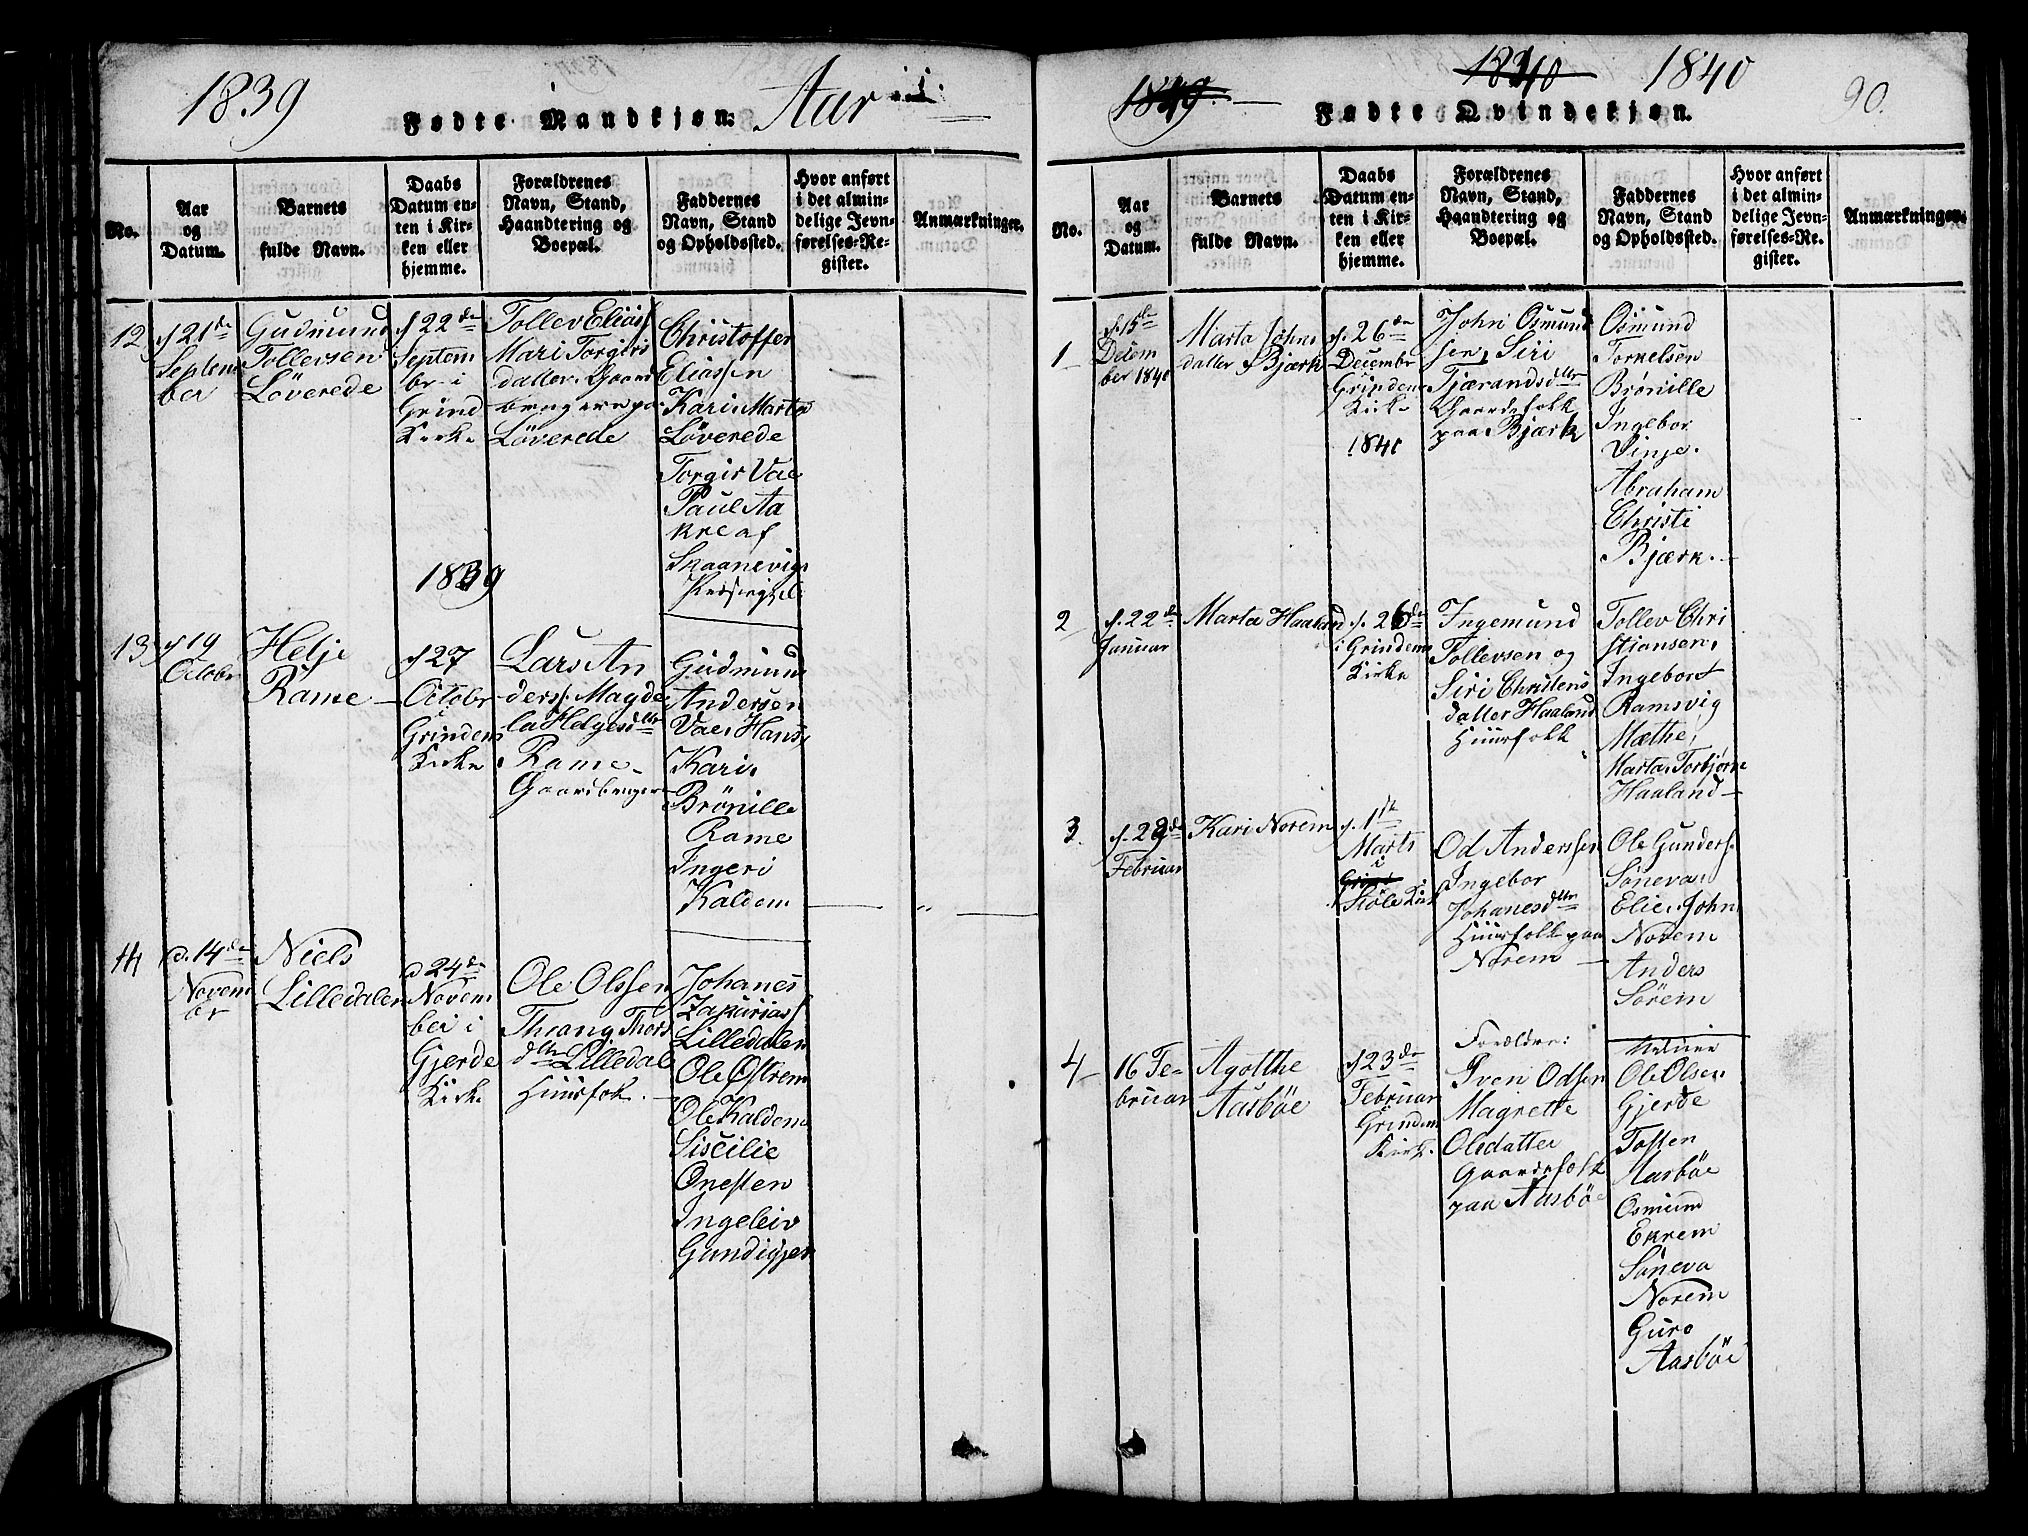 1839
Aar
Fødte Mandkjøn.
No.
Aar
og
Datum.
Barnets
fulde Navn.
Daabs
Datum en-
ten i Kir-
ken eller
hjemme.
Forældrenes
Navn, Stand,
Haandtering og
Boepæl.
Faddernes
Navn, Stand
og Opholdssted.
Hvor anført
i det almin-
delige Jevn-
førelses-Re-
gister.
Anmærkninger.
12
d 21de
Septem
ber
Gudmund
Tollevsen
Löverede
d 22de
Septem
br i
Grind
Kirke
1839
Tollev Eliass
Mari Torgirs
datter Gaard
brugere paa
Löverede
Christoffer
Eliassen
Kari Marta
Löverede
Torgir Vae
Paul Aa
kre af
Skaanevigs
13
d 19
Octobr
Helje
Rame
d 27
Octobr
Grindens
Kirke
Lars An
derss. Magde
la Helgesdtr
Rame
Gaardbruger
Gudmund
Andersen
Vae, Hans,
Kari,
Brönille
Rame
Ingeri
Kaldem
14
d. 14de
Novem
br
Niels
Lilledalen
d 24de
Novem
ber i
Gjerde
Kirke
Ole Olssen
Thorsdtr Lilledal
Huusfok.
Johanes
Zakariass
Lilledalen
Ole Østrem
Ole Kaldem
Siscilie
Onesten
Ingeleiv
1840
90.
Fødte Qvindekjøn.
No.
Aar
og
Datum.
Barnets
fulde Navn.
Daabs
Datum en-
ten i Kir-
ken eller
hjemme.
Forældrenes
Navn, Stand,
Haandtering og
Boepæl.
Faddernes
Navn, Stand
og Opholdssted.
Hvor anført
i det almin-
delige Jevn-
førelses-Re-
gister.
Anmærkninger.
1
d. 15de
Decem
ber 1840
Marta Johns
datter Bjærk
d. 26de
Decembr
Grindens
Kirke
1840
John Osmund
sen, Siri
Tjærandsdttr
Gaardsfolk
paa Bjærk
Osmund
Torkelsen
Brönille
Ingebor
Vinje.
Abraham
Christi
Bjærk.
2
d. 22de
Januar
Marta Haaland
d. 26de
i Grindens
Kirke
Ingemund
Tollevsen og
Siri Christens
datter Haaland
Huusfolk
Tollev Chri
stiansen,
Ingebor
Ramsvig
Mæthe,
Marta, Torbjørn
Haaland
3
Februar
Kari Norem
d. 1ste
Marts
i
Siöle Kirk
Od Anderssen
Ingebor
Johanesdttr
Huusfolk paa
Norem
Ole Gunders.
Söneva
Elie, John
Norem
Anders
Sörem
4
16 Fe-
bruar
Agotthe
Aasböe
d 23de
Februar
Grindens
Kirk.
Forældre:
Sven Odsen
Magrette
Olsdatter
Gaardsfolk
paa Aasböe
Ole Olsen
Gjerde
Tosten
Aasböe
Osmund
Ekrem
Söneva
Norem
Guro
Aasböe